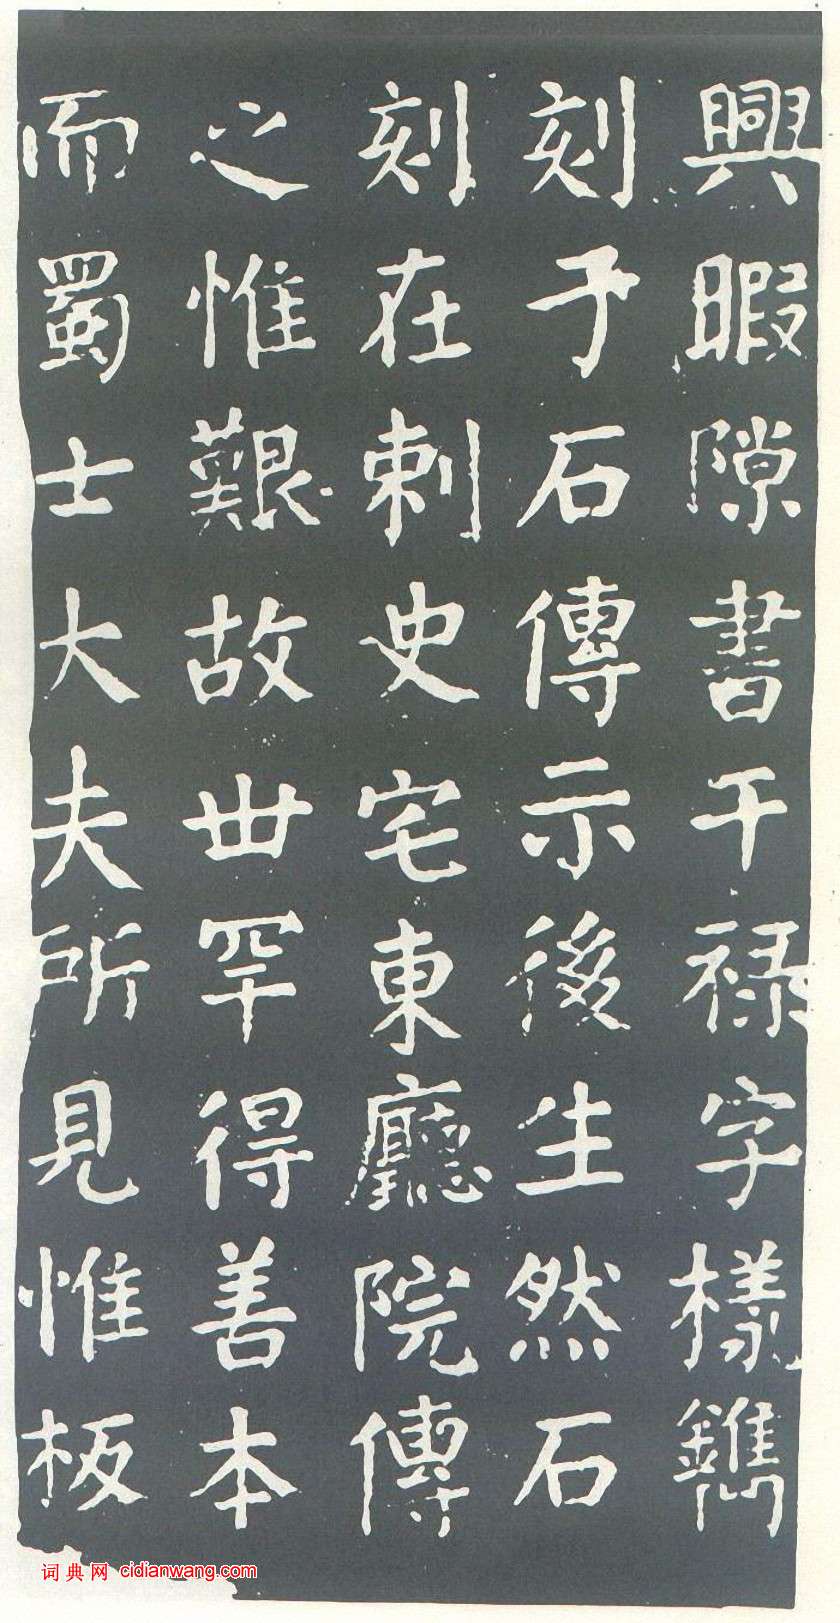 興暇隙書干禄字樣鐫
刻于石傳示後生然石
刻在刺史宅東廳院傳
之惟艱故世罕得善本
而蜀士大夫所見惟板
词典网 cidianwang.com